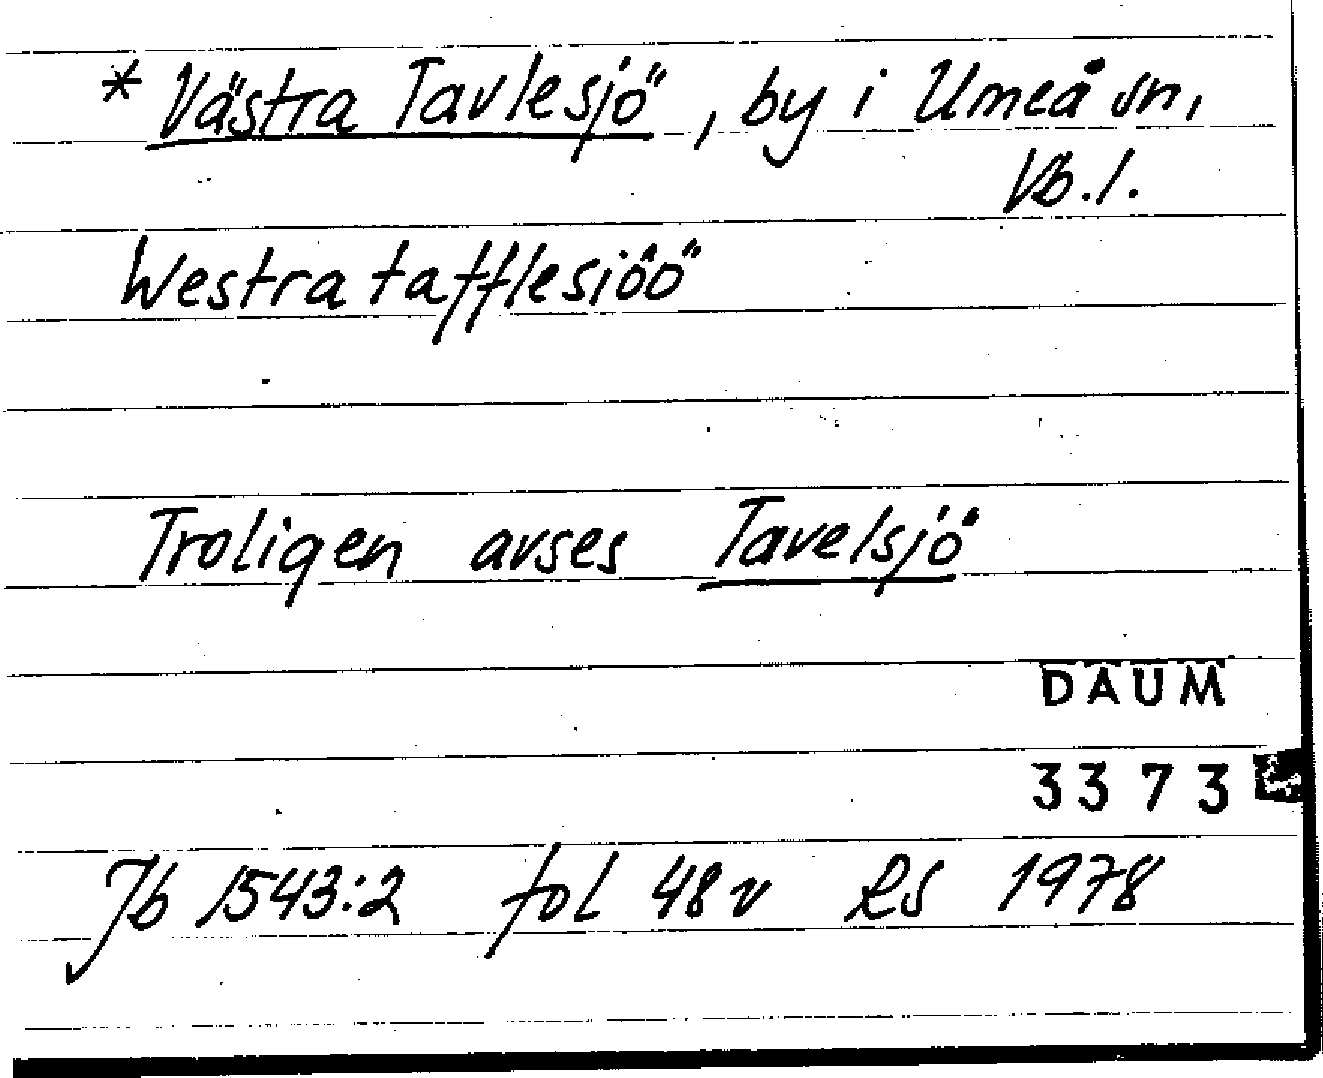 * Västra Tavlesjö, by i Umeå sn,
Vb.l.
Westra tafflesiöö
Troligen avses Tavelsjö
DAUM
3373
Jb 1543:2 fol 48 v RS 1978